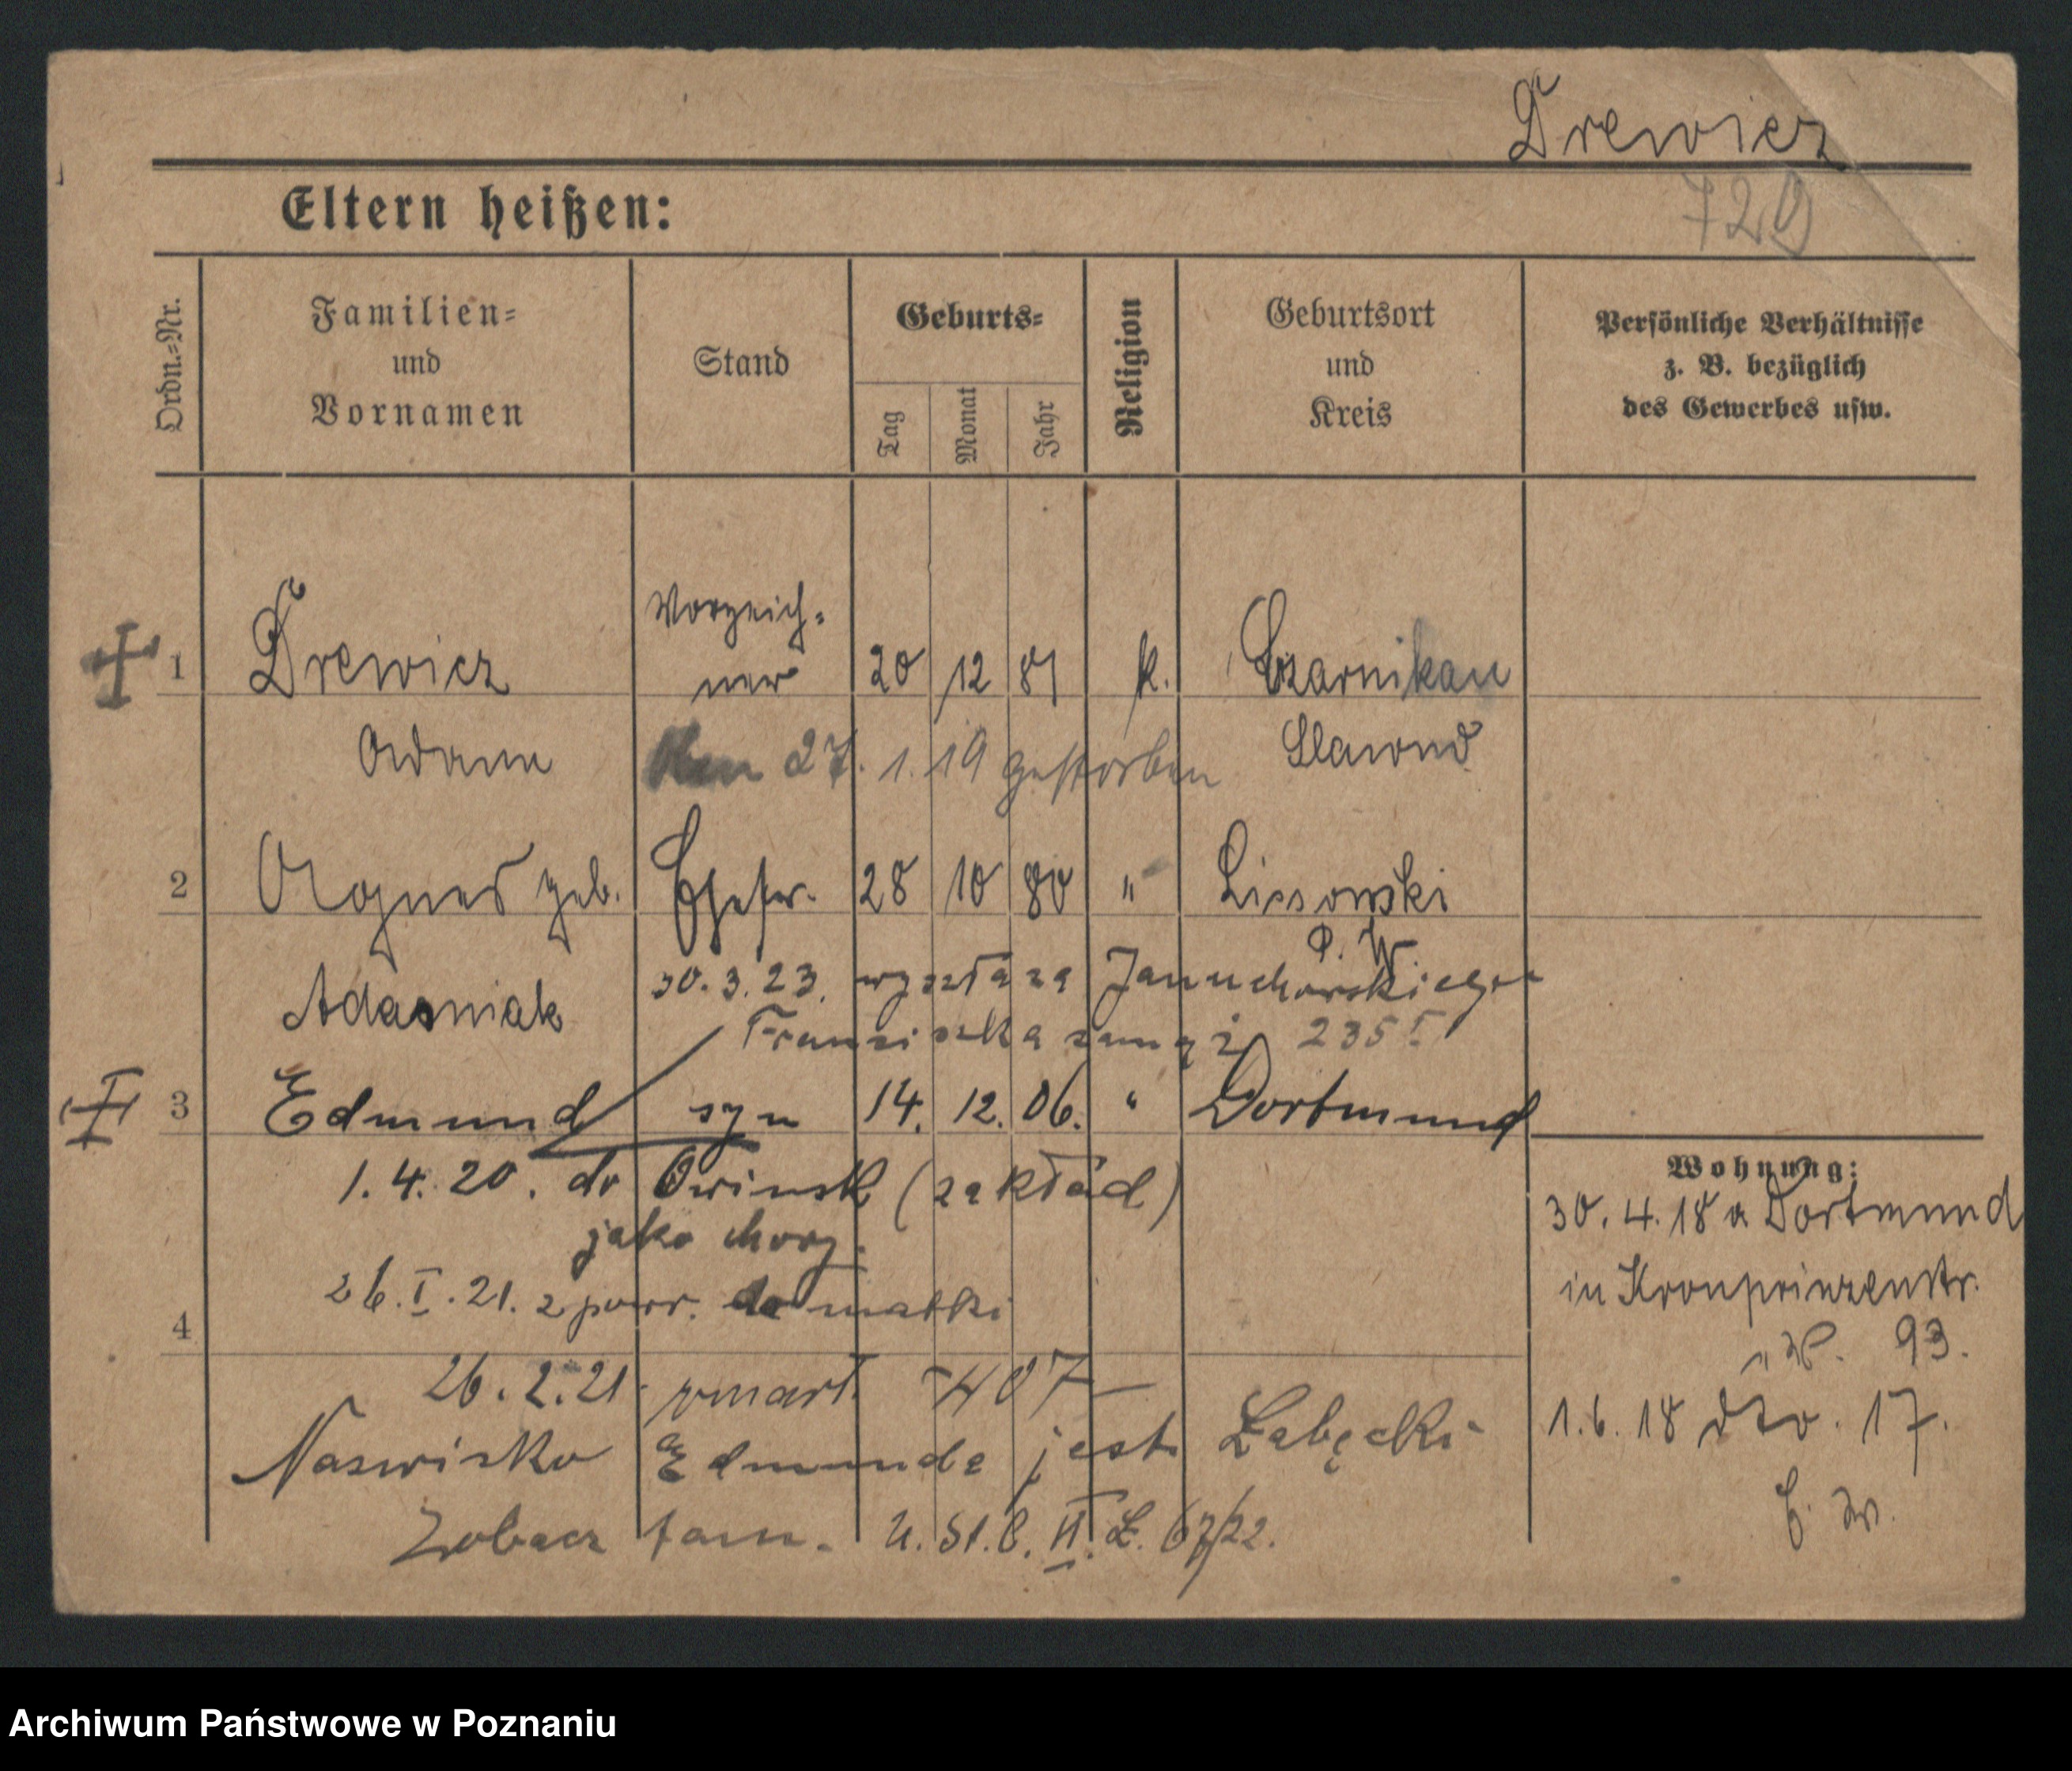 Drewicz
729
Eltern heißen:
Ordn.-Nr.
Familien-
und
Vornamen
Stand
Geburts-
Tag
Monat
Jahr
Religion
Geburtsort
und
Kreis
Persönliche Verhältnisse
z. B. bezüglich
des Gewerbes usw.
1 Drewicz Vorzeich-
ner 20 12 81 k. Czarnikau
Adam 27. 1. 19 gestorben
2 Agnes geb. Ehefr. 28 10 80 " Lissowski
P. W.
Adasniak 30. 3. 23. wyszła za Januchowskiego
Franciszka 235
3 Edmund syn 14. 12. 06. " Dortmund
1. 4. 20. do Owinsk (zakład)
jako chory.
26. I. 21. z powr. do matki
4
26. 2. 21. zmarł 407
Nazwisko Edmunda jest Łabęcki
Zobacz tam. U. St. C. II. L. 67/22.
Wohnung:
30. 4. 18 a Dortmund
in Kronprinzenstr.
93.
1. 6. 18 dto. 17.
Archiwum Państwowe w Poznaniu